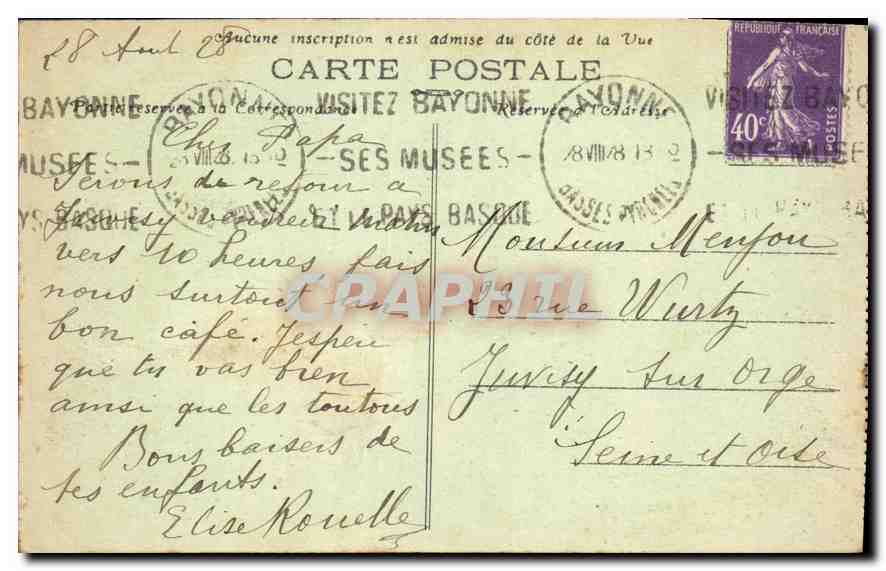 28 Aout 28
Aucune inscription n'est admise du côté de la Vue
CARTE POSTALE
Partie réservée à la Correspondance
Réservée à l'Adresse
REPUBLIQUE FRANÇAISE
40c
POSTES
BAYONNE
MUSEES-
PAYS BASQUE
BAYONNE
28 VIII 28. 13
BASSES PYRENEES
VISITEZ BAYONNE
- SES MUSEES -
ET LE PAYS BASQUE
BAYONNE
28 VIII 28 13
BASSES PYRENEES
VISITEZ BAYO
- SES MUSEE
Cher Papa
Serons de retour à
Juvisy vendredi matin
vers 10 heures fais
nous surtout un
bon café. J'espère
que tu vas bien
ainsi que les toutous
Bons baisers de
tes enfants.
Elise Rouelle
Monsieur Menjou
23 rue Wurtz
Juvisy sur Orge
Seine et Oise
CPAPHIL